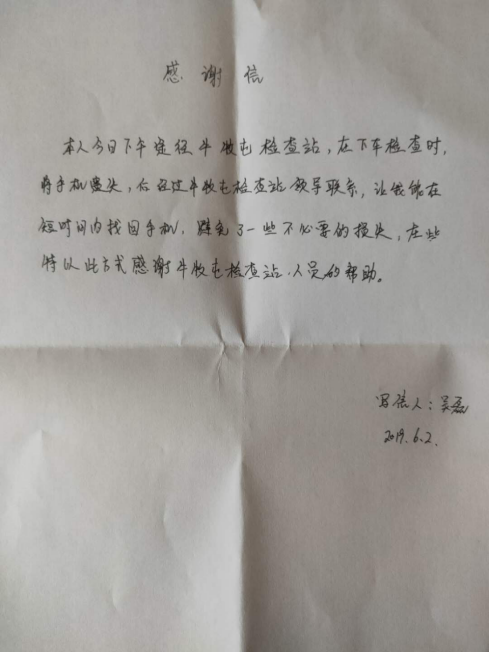 感谢信
本人今日下午途径牛收屯检查站,在下车检查时,
将手机遗失,后经过牛收屯检查站领导联系,让我能在
短时间内找回手机,避免了一些不必要的损失,在此
特以此方式感谢牛收屯检查站人员的帮助。
写信人:吴磊
2019.6.2.